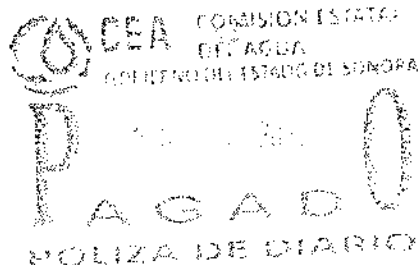 CEA COMISION ESTATAL
DEL AGUA
GOBIERNO DEL ESTADO DE SONORA
PAGADO
POLIZA DE DIARIO